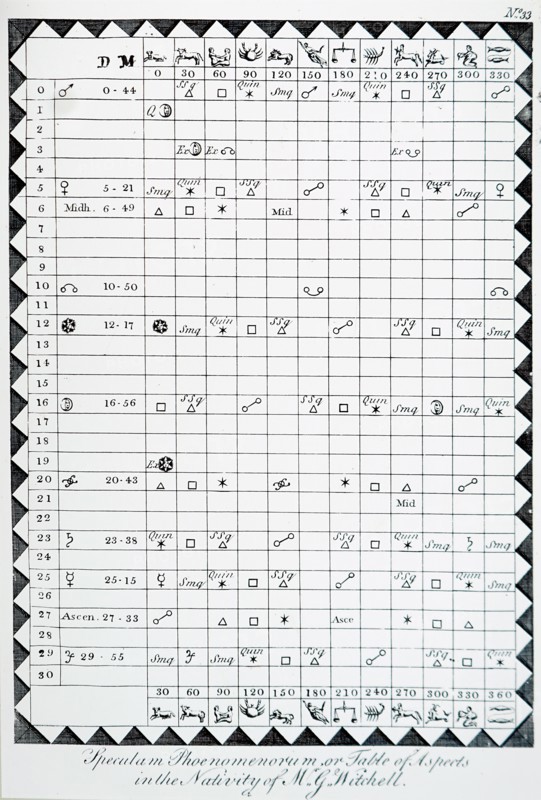 Nº 33
D M
0 30 60 90 120 150 180 210 240 270 300 330
0 ♂ 0-44 SSq △ □ Quin ✶ Smq ♂ Smq Quin ✶ □ SSq △ ☍
1 Q
2
3 Ex Ex ☊ Ex ☋
4
5 ♀ 5-21 Smq Quin ✶ □ SSq △ ☍ SSq △ □ Quin ✶ Smq ♀
6 Midh. 6-49 △ □ ✶ Mid ✶ □ △ ☍
7
8
9
10 ☊ 10-50 ☋ ☊
11
12 12-17 Smq Quin ✶ □ SSq △ ☍ SSq △ □ Quin ✶ Smq
13
14
15
16 16-56 □ SSq △ ☍ SSq △ □ Quin ✶ Smq Smq Quin ✶
17
18
19 Ex
20 20-43 △ □ ✶ ✶ □ △ ☍
21 Mid
22
23 ♄ 23-38 Quin ✶ □ SSq △ ☍ SSq △ □ Quin ✶ Smq ♄ Smq
24
25 ☿ 25-15 ☿ Smq Quin ✶ □ SSq △ ☍ SSq △ □ Quin ✶ Smq
26
27 Ascen. 27-33 ☍ △ □ ✶ Asce ✶ □ △
28
29 ♃ 29-55 Smq ♃ Smq Quin ✶ □ SSq △ ☍ SSq △ □ Quin ✶
30
30 60 90 120 150 180 210 240 270 300 330 360
Speculam Phoenomenorum, or Table of Aspects
in the Nativity of Mr. G. Witchell.